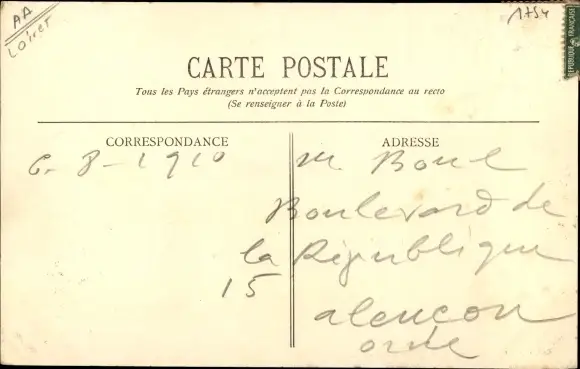 AA
LOIRET
1754
REPUBLIQUE FRANÇAISE
CARTE POSTALE
Tous les Pays étrangers n'acceptent pas la Correspondance au recto
(Se renseigner à la Poste)
CORRESPONDANCE
6-8-1910
ADRESSE
M Boul
Boulevard de
la République
15
alençon
orne